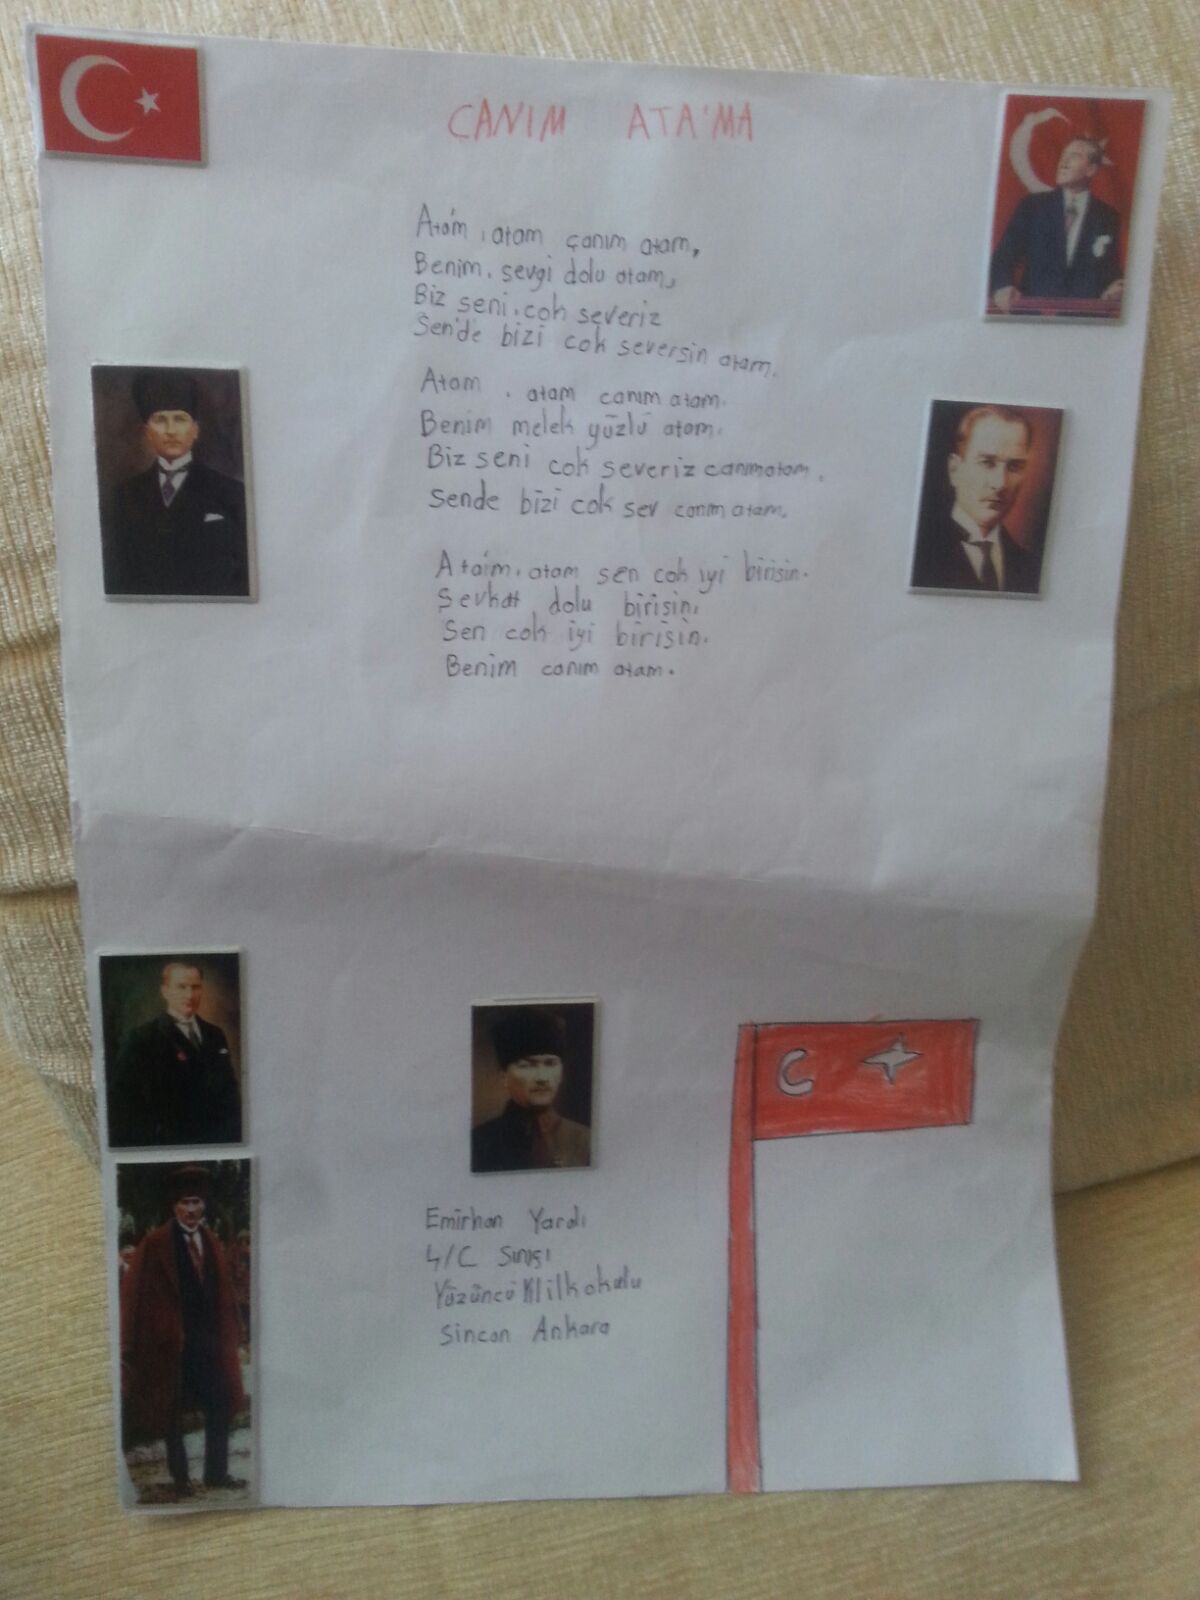 CANIM ATA'MA
Atam, atam canım atam,
Benim, sevgi dolu atam,
Biz seni, cok severiz
Sen'de bizi cok seversin atam.
Atam, atam canım atam.
Benim melek yüzlü atam.
Biz seni cok severiz canımatam.
Sende bizi cok sev canım atam.
Atam, atam sen cok iyi birisin.
Şevkat dolu birisin.
Sen cok iyi birisin.
Benim canım atam.
Emirhan Yardı
4/C Sınıfı
Yüzüncü Yıl ilkokulu
Sincan Ankara